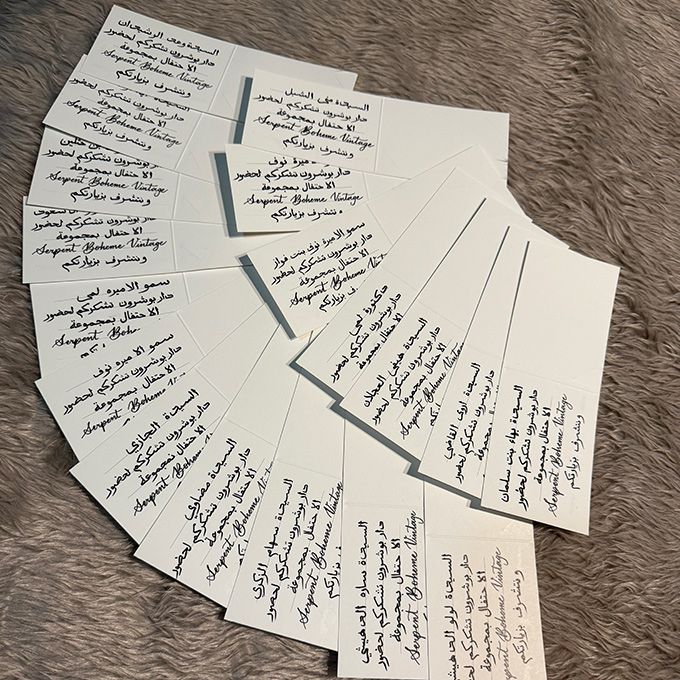 السيدة وعد الرشيدان
دار بوشرون تشكركم لحضور
الاحتفال بمجموعة
Serpent Boheme Vintage
ونتشرف بزيارتكم
دار بوشرون تشكركم لحضور
الاحتفال بمجموعة
Serpent Boheme Vintage
ونتشرف بزيارتكم
دار بوشرون تشكركم لحضور
الاحتفال بمجموعة
Serpent Boheme Vintage
ونتشرف بزيارتكم
دار بوشرون تشكركم لحضور
الاحتفال بمجموعة
Serpent Boheme Vintage
ونتشرف بزيارتكم
سمو الاميره لمى
دار بوشرون تشكركم لحضور
الاحتفال بمجموعة
Serpent
سمو الاميره نوف
دار بوشرون تشكركم لحضور
الاحتفال بمجموعة
Serpent Boheme
السيدة
دار بوشرون تشكركم لحضور
الاحتفال بمجموعة
Serpent Boheme
السيدة
دار بوشرون تشكركم لحضور
الاحتفال بمجموعة
Serpent Boheme Vintage
السيدة سهام
دار بوشرون تشكركم لحضور
الاحتفال بمجموعة
Serpent Boheme Vintage
السيدة سارة
دار بوشرون تشكركم لحضور
الاحتفال بمجموعة
Serpent Boheme Vintage
السيدة لولو
دار بوشرون تشكركم لحضور
الاحتفال بمجموعة
Serpent Boheme Vintage
ونتشرف بزيارتكم
السيدة مي الشبل
دار بوشرون تشكركم لحضور
الاحتفال بمجموعة
Serpent Boheme Vintage
ونتشرف بزيارتكم
نوف
دار بوشرون تشكركم لحضور
الاحتفال بمجموعة
Serpent Boheme Vintage
ونتشرف بزيارتكم
سمو الاميرة نوف بنت فواز
دار بوشرون تشكركم لحضور
الاحتفال بمجموعة
Serpent Boheme
دار بوشرون تشكركم لحضور
الاحتفال بمجموعة
السيدة هيفى العجلان
دار بوشرون تشكركم لحضور
الاحتفال بمجموعة
Serpent Boheme Vintage
السيدة اروى القاضي
دار بوشرون تشكركم لحضور
الاحتفال بمجموعة
السيدة بهاء بنت سلمان
دار بوشرون تشكركم لحضور
الاحتفال بمجموعة
Serpent Boheme Vintage
ونتشرف بزيارتكم